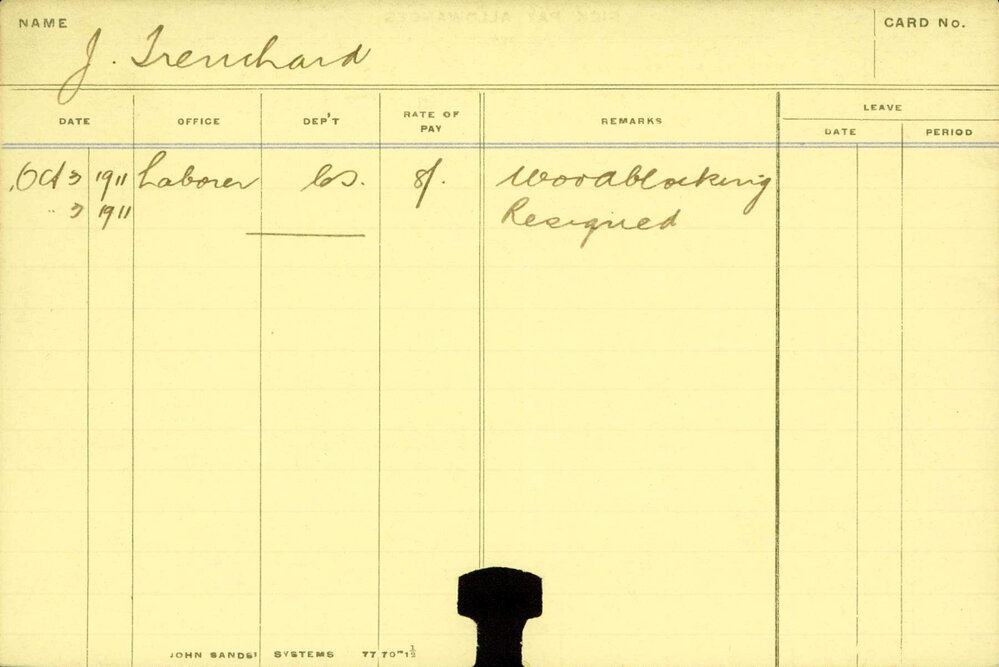 NAME J. Trenchard CARD No.
DATE OFFICE DEP'T RATE OF PAY REMARKS LEAVE
DATE PERIOD
Oct 3 1911 Laborer CS. 8/. Woodblocking
" 3 1911 Resigned
JOHN SANDS' SYSTEMS